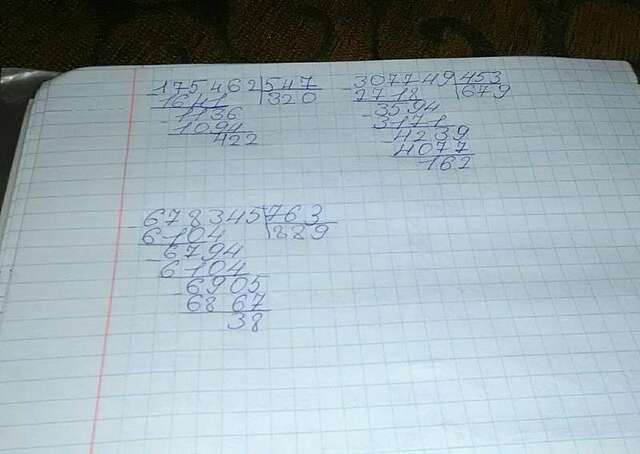 175462 547
1641 320
-1136
1094
422
-307749 453
2718 679
-3594
3171
-4239
4077
162
-678345 763
6104 889
-6794
6104
-6905
6867
38